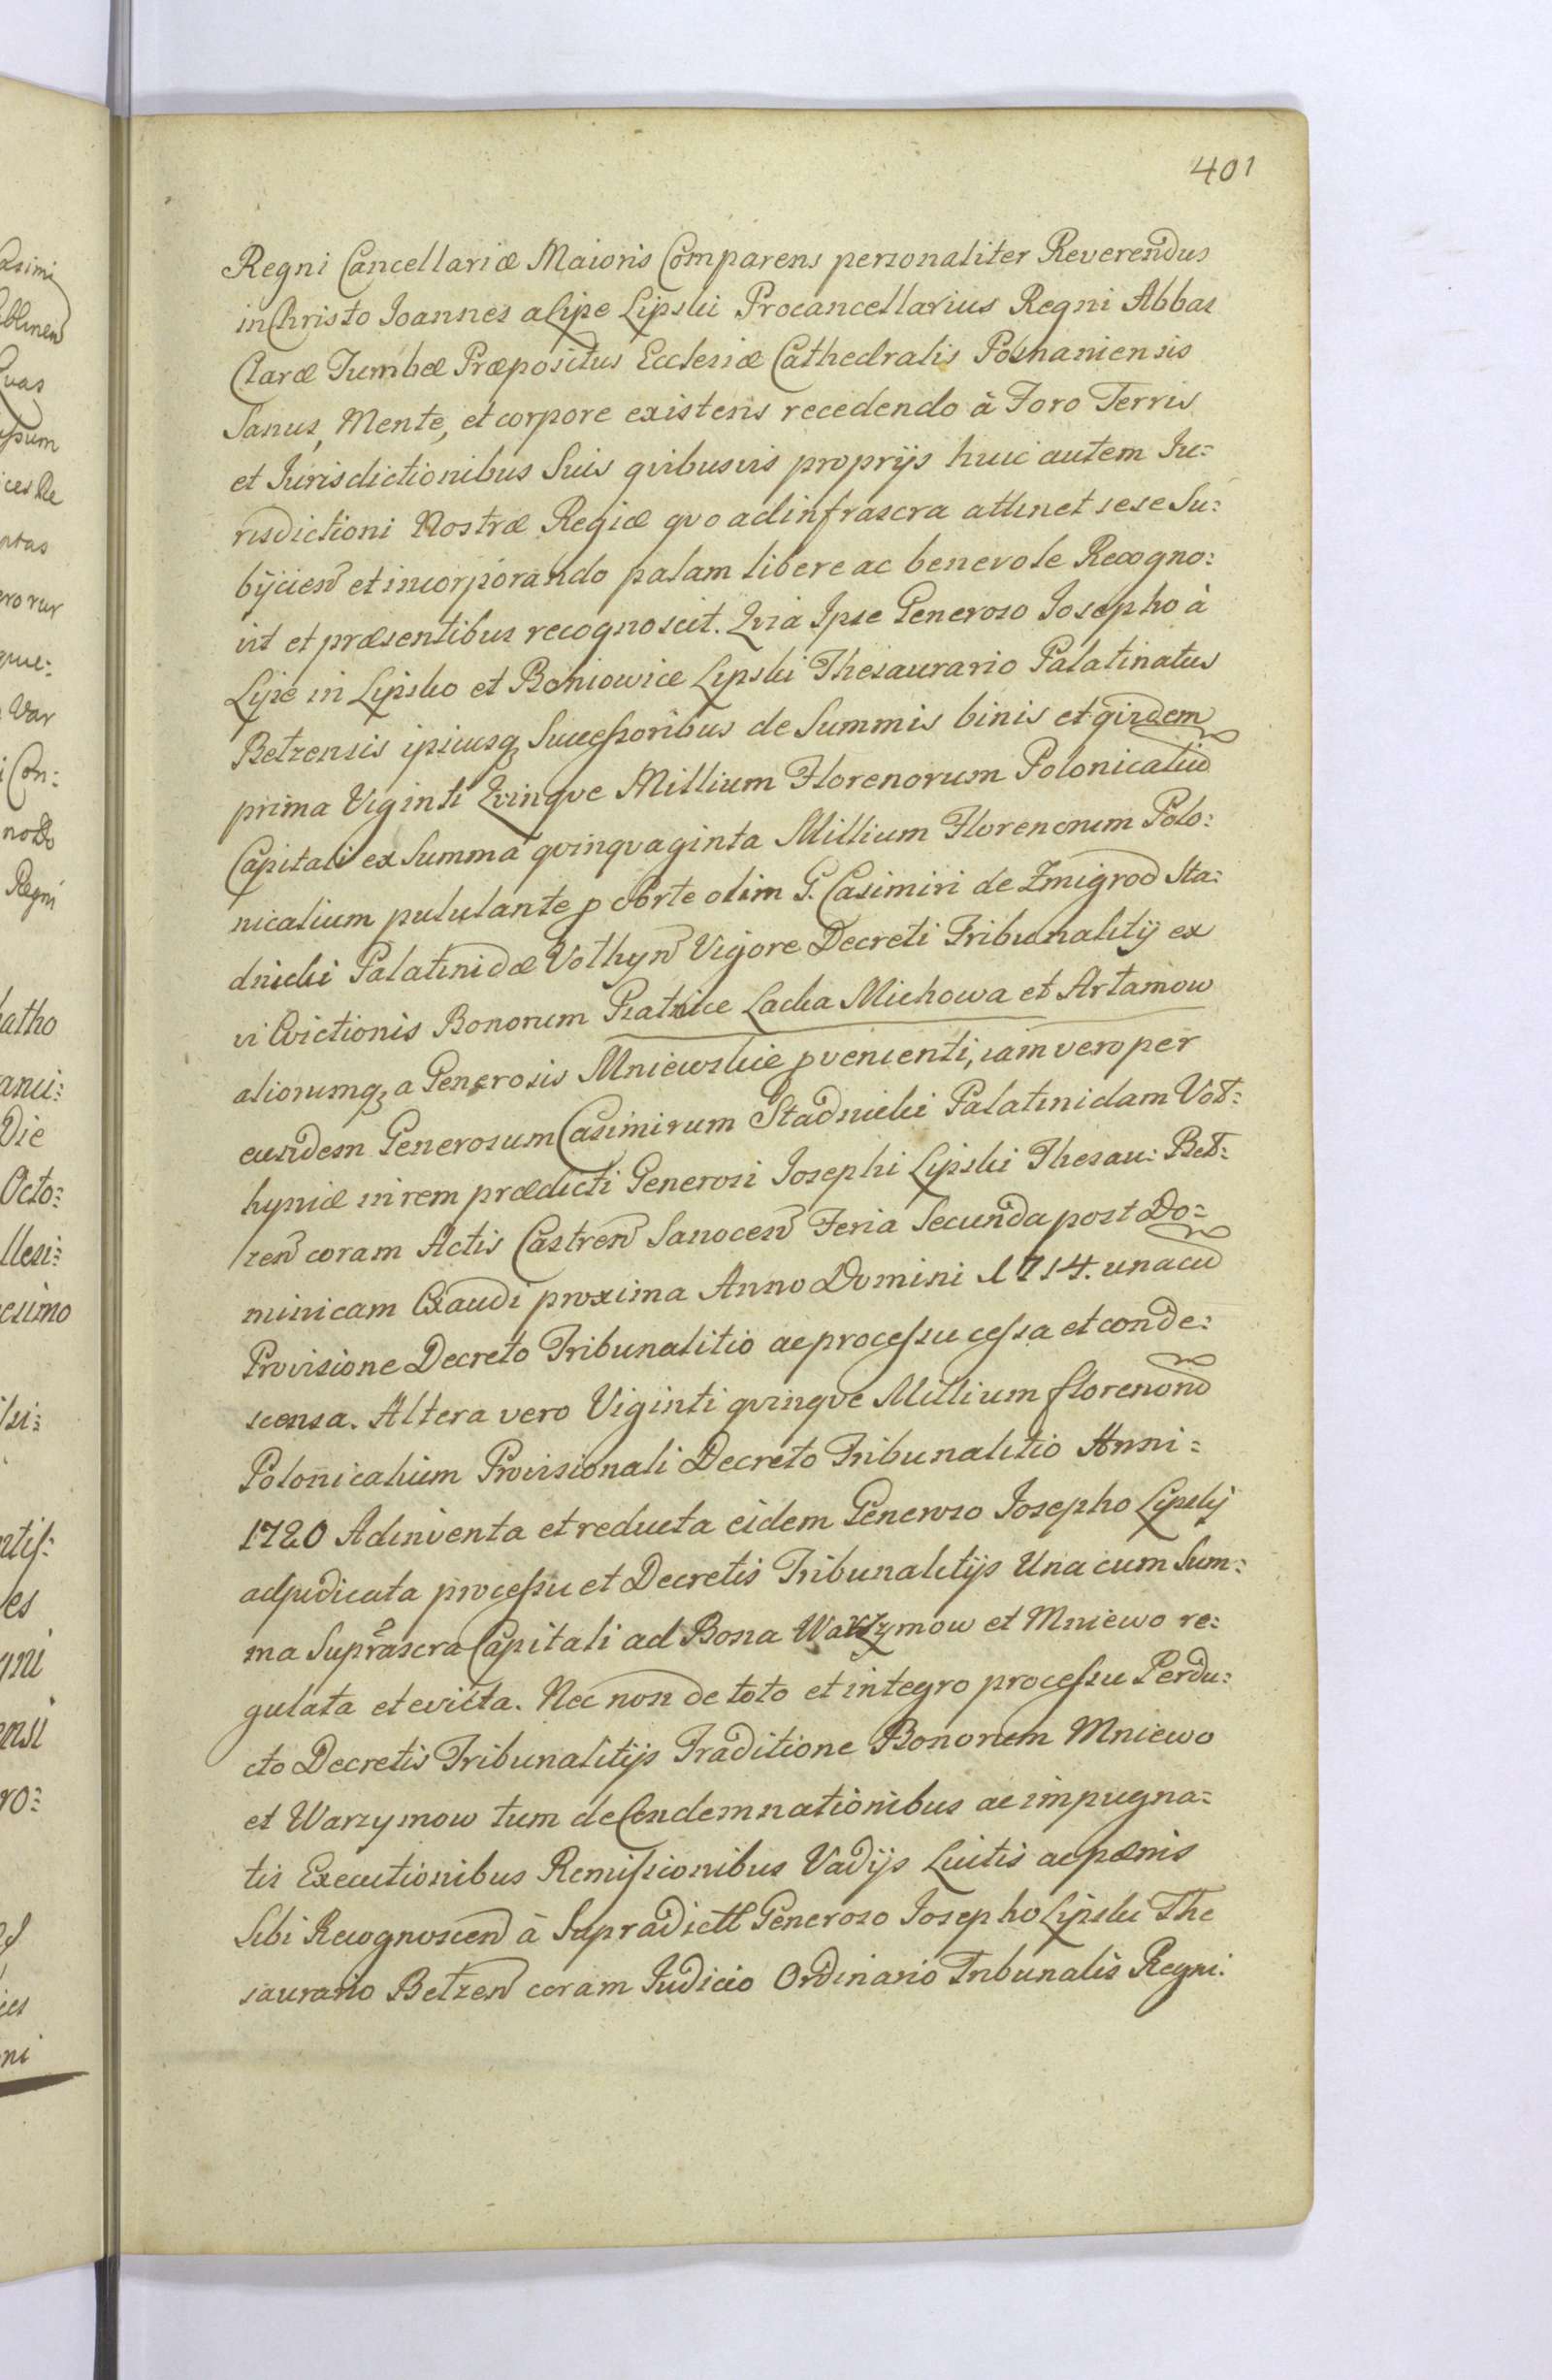 401
Regni Cancellariæ Maioris Comparens personaliter Reverendus
in Christo Ioannes a Lipe Lipski Procancellarius Regni Abbas
Claræ Tumbæ Præpositus Ecclesiæ Cathedralis Posnaniensis
Sanus, Mente, et corpore existens recedendo à Foro Terris
et Iurisdictionibus Suis qvibusvis proprijs huic autem Iu:
risdictioni Nostræ Regiæ qvo ad infrascra attinet sese Su:
bijcien et incorporando palam libere ac benevole Recogno:
vit et præsentibus recognoscit. Qvia Ipse Generoso Iosepho à
Lipe in Lipsko et Boniowice Lipski Thesaurario Palatinatus
Betzensis ipsiusq Successoribus de Summis binis et qvidem
prima Viginti Qvinqve Millium Florenorum Polonicaliu
Capitali ex Summa qvinqvaginta Millium Florenorum Polo:
nicalium pululante p olim G. Casimiri de Zmigrod Sta:
dnicki Palatinidæ Volhyn Vigore Decreti Tribunalitij ex
vi Evictionis Bonorum Lacka Michowa et Artamow
aliorumq a Generosis Mniewskie pvenienti, iam vero per
eundem Generosum Casimirum Stadnicki Palatinidam Vol:
hyniæ in rem prædicti Generosi Iosephi Lipski Thesau: Bel:
zen coram Actis Castren Sanocen Feria Secunda post Do:
minicam Exaudi proxima Anno Domini 1714. unacu
Provisione Decreto Tribunalitio ac processu cessa et conde:
scensa. Altera vero Viginti qvinqve Millium florenoru
Polonicalium Provisionali Decreto Tribunalitio Anni:
1720 Adinventa et reducta eidem Generoso Iosepho Lipskij
adjudicata processu et Decretis Tribunalitijs Una cum Sum:
ma Suprascra Capitali ad Bona Warzymow et Mniewo re:
gulata et evicta. Nec non de toto et integro processu Perdu:
cto Decretis Tribunalitijs Traditione Bonorum Mniewo
et Warzymow tum de Condemnationibus ac impugna:
tis Executionibus Remissionibus Vadijs Luitis ac pænis
Sibi Recognoscen à Supradicto Generoso Iosepho Lipski The
saurario Betzen coram Iudicio Ordinario Tribunalis Regni.